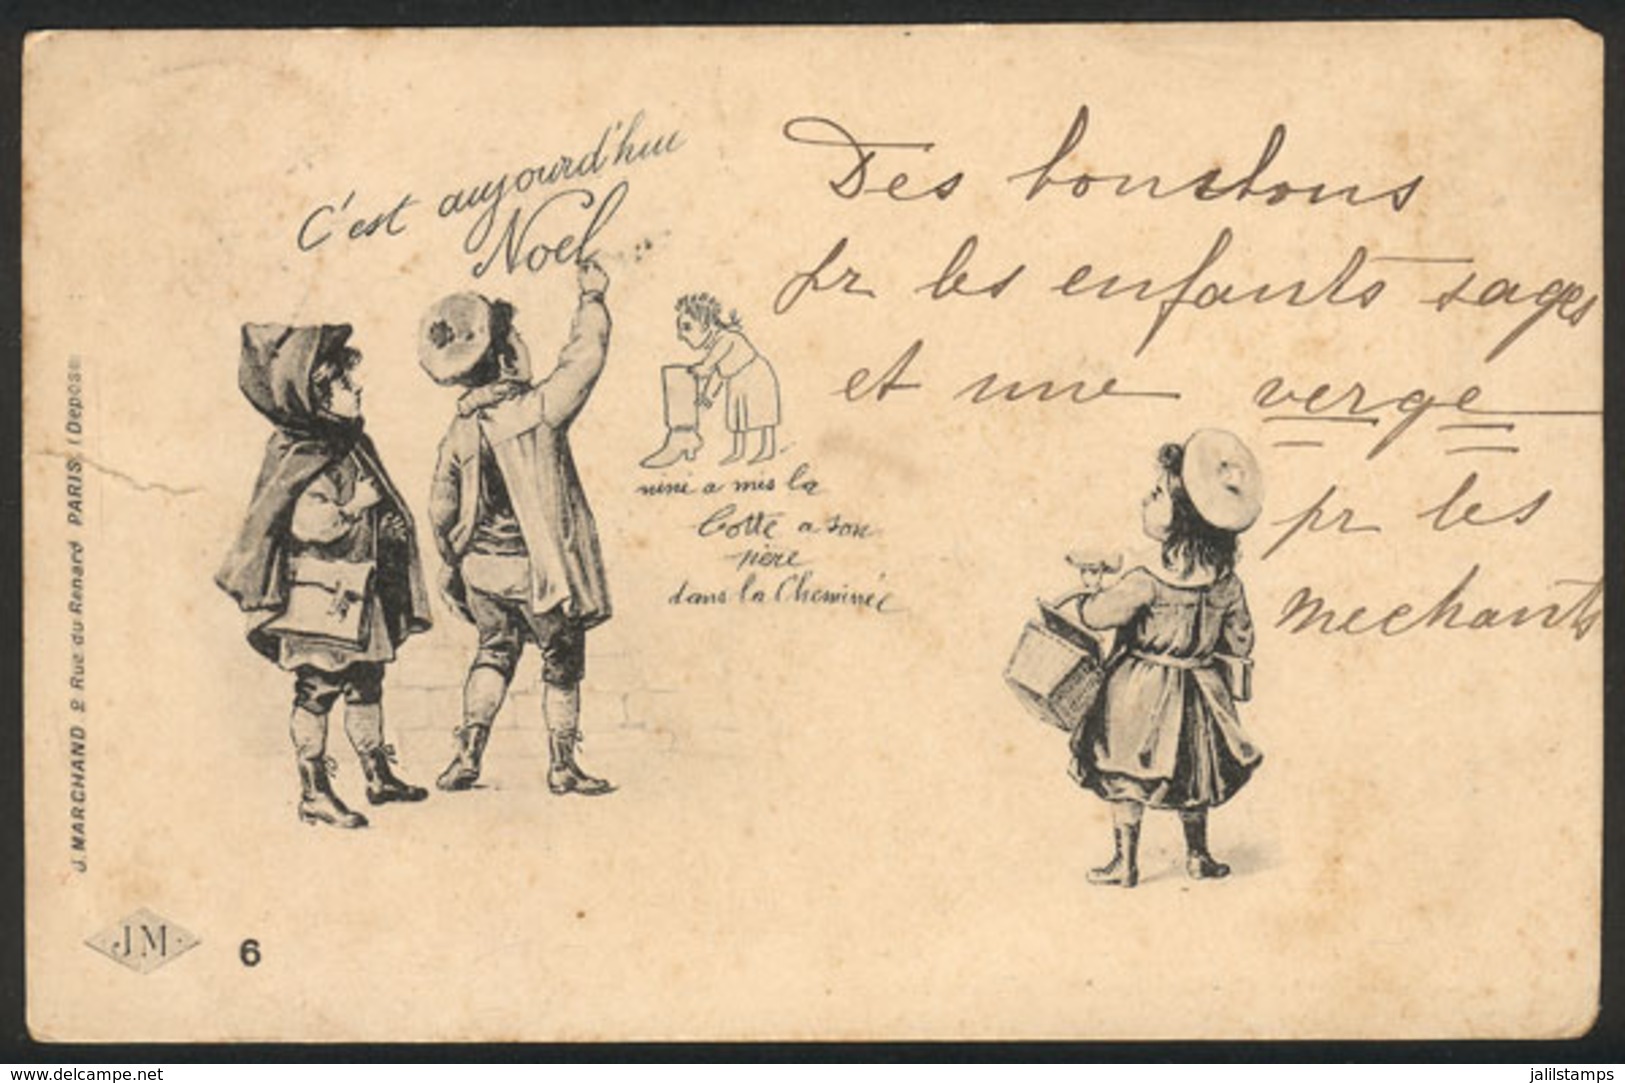 C'est aujourd'hui
Noel
nini a mis la
botte a son
père
dans la Cheminée
Des bonbons
pr les enfants sages
et une verge
pr les
mechants
J. MARCHAND 2 Rue du Renard PARIS (Déposé
JM
6
www.delcampe.net
jalilstamps